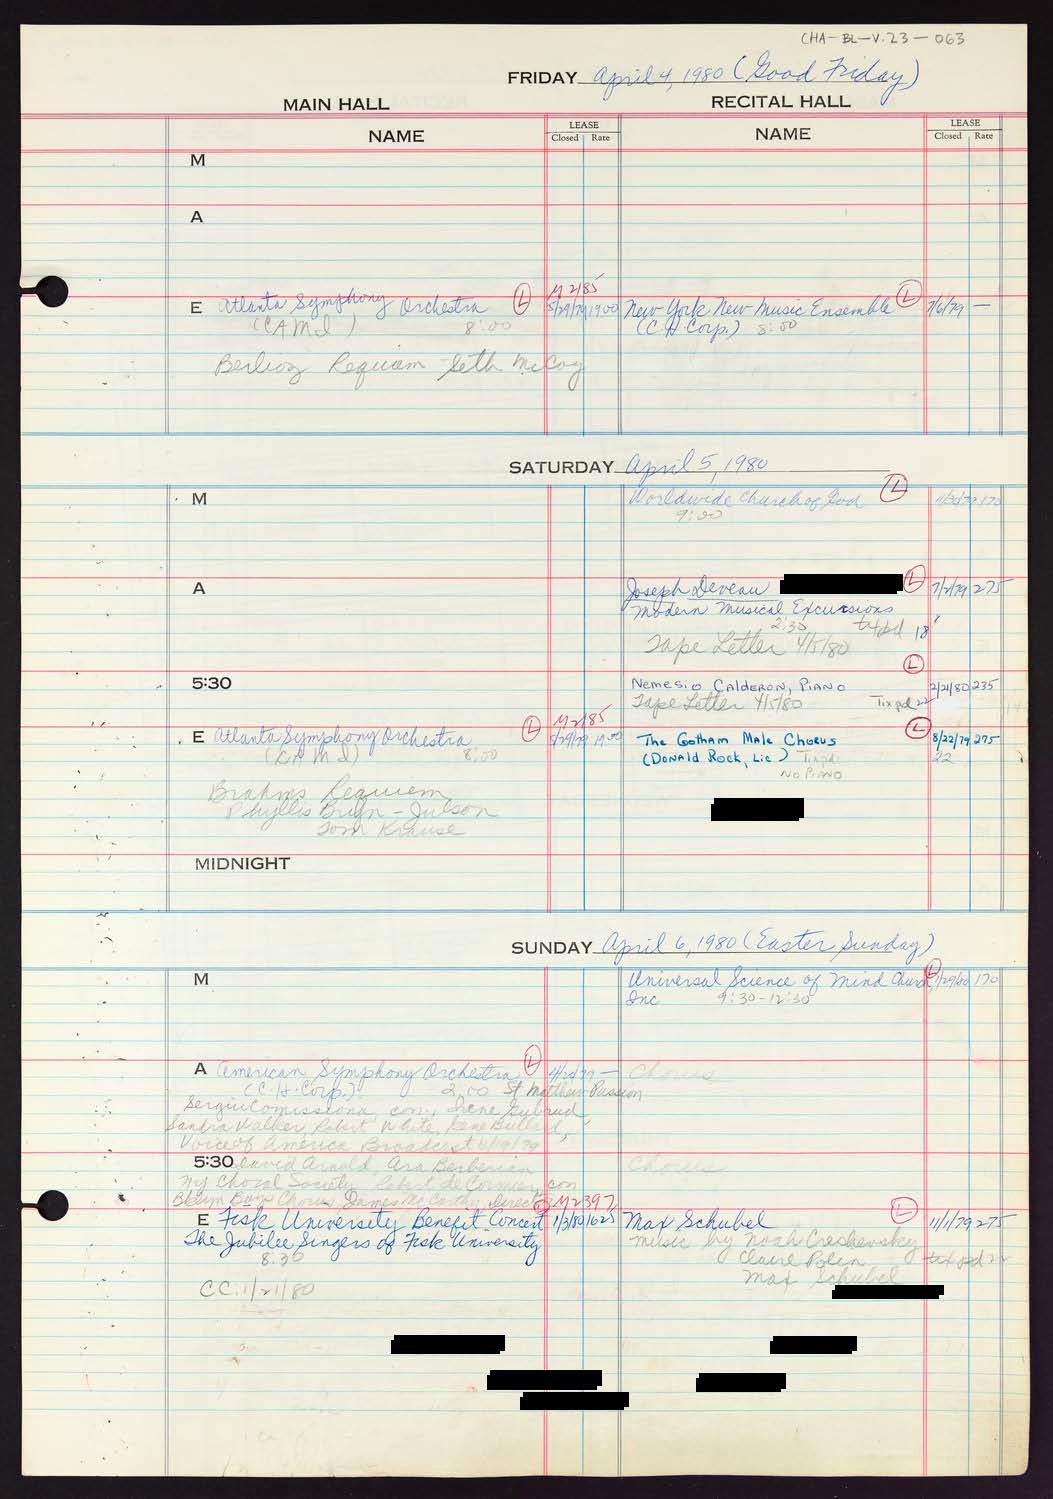 CHA-BL-V.23-063
FRIDAY April 4, 1980 (Good Friday)
MAIN HALL RECITAL HALL
NAME LEASE Closed Rate NAME LEASE Closed Rate
M
A
M 2185
E Atlanta Symphony Orchestra L 5/29/79 1900 New York New Music Ensemble L 7/6/79 —
(CAMI) 8:00 (C.H. Corp.) 8:00
Berlioz Requiem - Seth McCoy
SATURDAY April 5, 1980
M Worldwide Church of God L 170
9:00
A Joseph Deveau L 7/2/79 275
Modern Musical Excursions
2:30 txpd 18
Tape Letter 4/5/80
L
5:30 Nemesio Calderon, Piano 2/21/80 235
Tape Letter 4/5/80 Tix pd 22
M 2185
E Atlanta Symphony Orchestra L 5/29/79 1900 The Gotham Male Chorus L 8/22/79 275
(CAMI) 8:00 (Donald Rock, Lic.) Tix pd 22
No Piano
Brahms Requiem
Phyllis Bryn-Julson
Tom Krause
MIDNIGHT
SUNDAY April 6, 1980 (Easter Sunday)
M Universal Science of Mind Church, L 1/29/80 170
Inc 9:30-12:30
A American Symphony Orchestra L — Chorus
(C.H. Corp.) 2:00 St Matthew Passion
Sergiu Comissiona, con., Irene Gubrud
Sandra Walker, Robert White, Gene Bullard,
Voice of America Broadcast
5:30 David Arnold, Ara Berberian Chorus
NY Choral Society, Robert de Cormier, con
Bklyn Boys Chorus, James McCarthy, Direct
L M2397
E Fisk University Benefit Concert 1/3/80 1625 Max Schubel L 11/1/79 275
The Jubilee Singers of Fisk University music by Noah Creshevsky
8:30 Claire Polin tix pd 22
Max Schubel
CC: 1/21/80